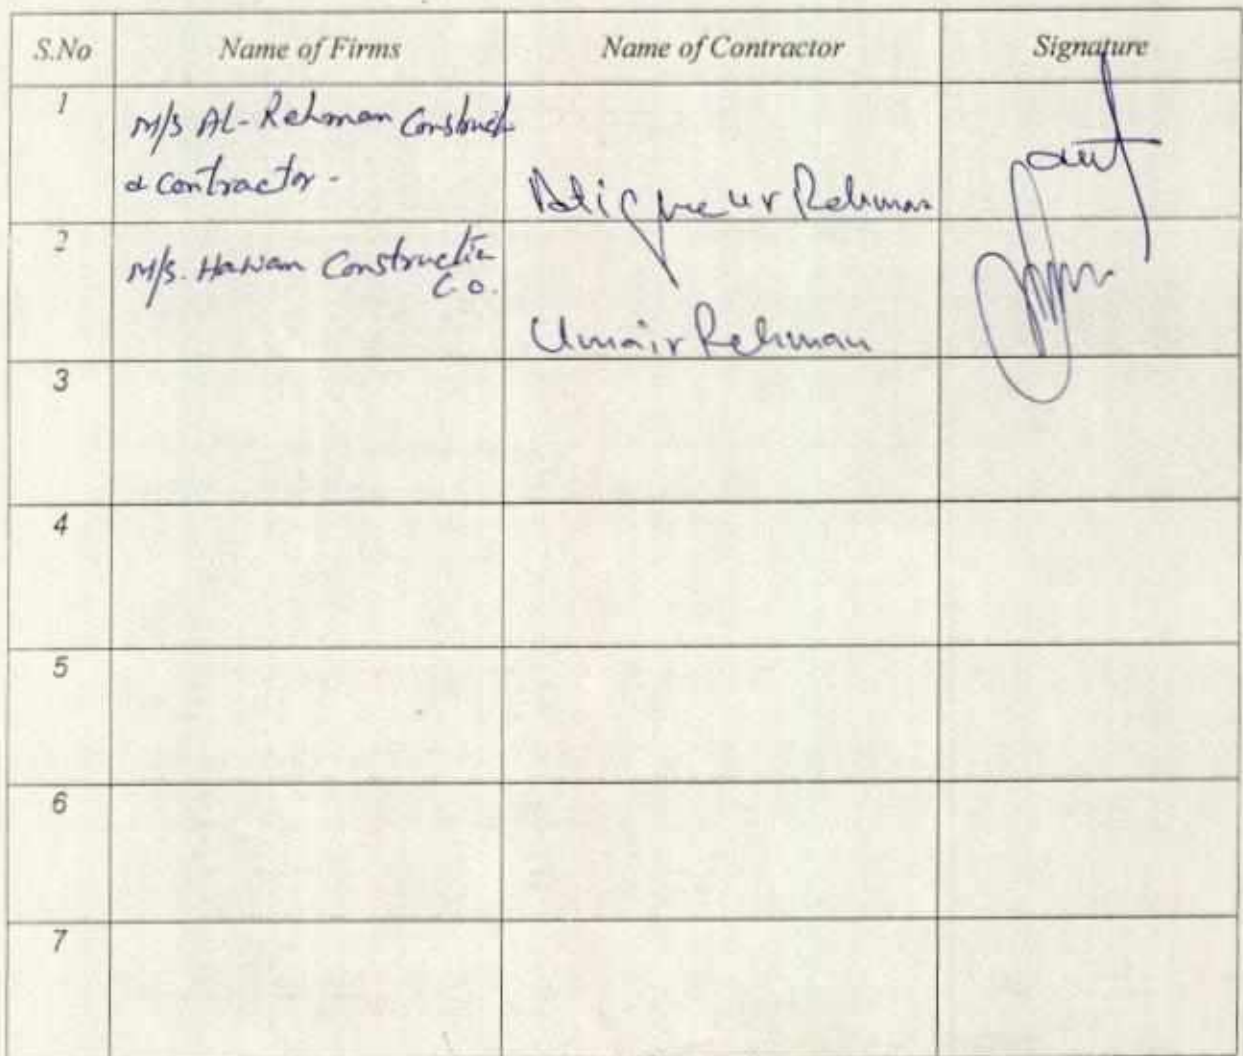 S.No Name of Firms Name of Contractor Signature
1 M/s AL-Rehman Construct
& contractor -
Atiq ur Rehman
2 M/s. Construction
Co.
Umair Rehman
3
4
5
6
7